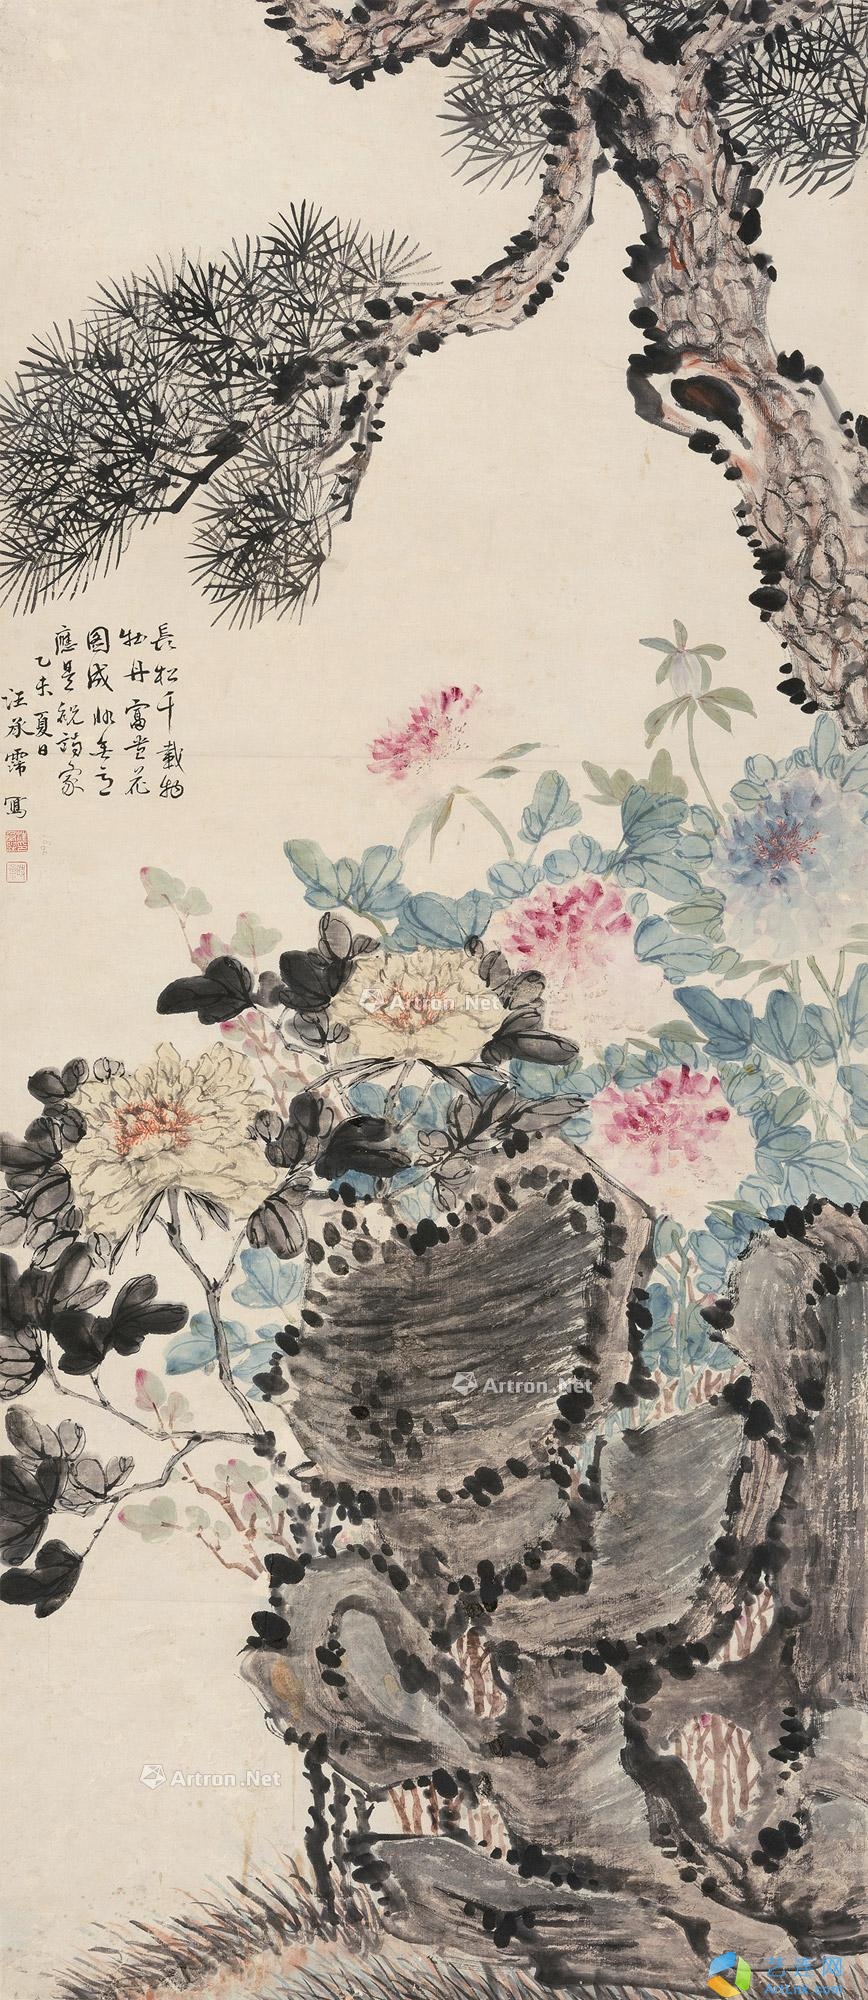 長松千載物
牡丹富貴花
圖成
應是祝詩家
乙未夏日
汪承霈 寫
Artron.Net
Artron.Net
Artron.Net